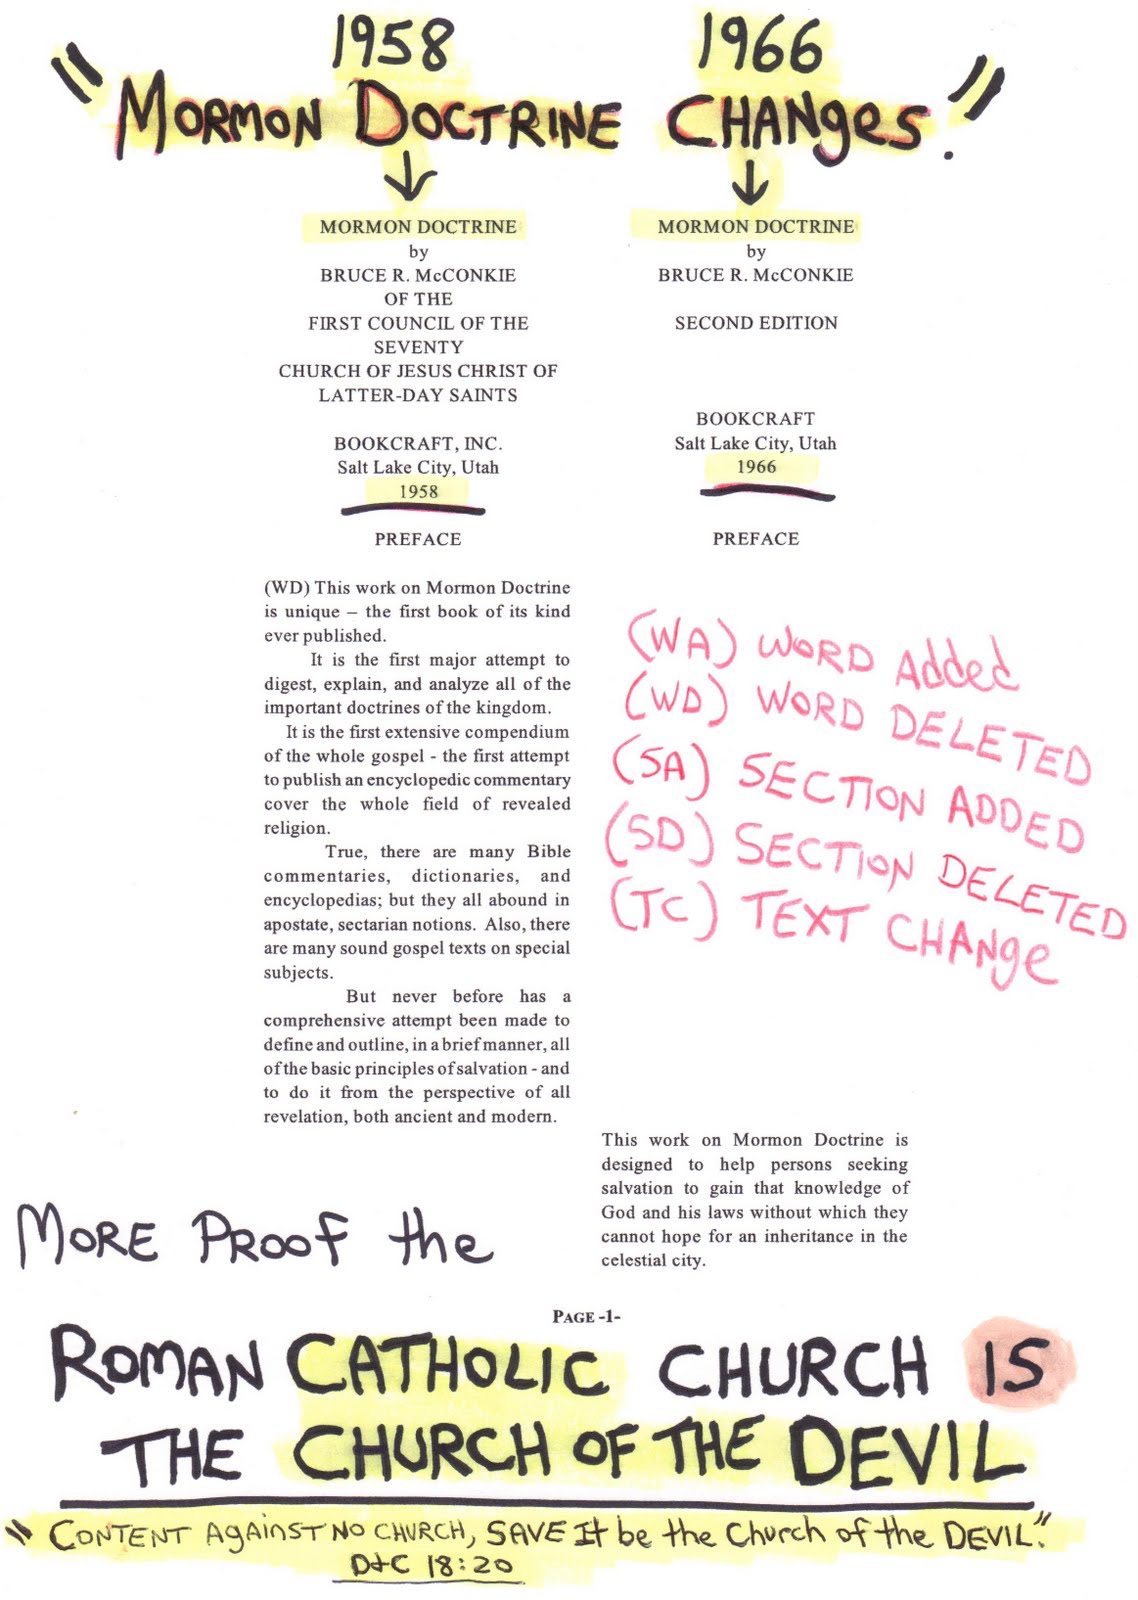 1958 1966
"MORMON DOCTRINE CHANges."
MORMON DOCTRINE
by
BRUCE R. McCONKIE
OF THE
FIRST COUNCIL OF THE
SEVENTY
CHURCH OF JESUS CHRIST OF
LATTER-DAY SAINTS
BOOKCRAFT, INC.
Salt Lake City, Utah
1958
PREFACE
(WD) This work on Mormon Doctrine
is unique – the first book of its kind
ever published.
It is the first major attempt to
digest, explain, and analyze all of the
important doctrines of the kingdom.
It is the first extensive compendium
of the whole gospel - the first attempt
to publish an encyclopedic commentary
cover the whole field of revealed
religion.
True, there are many Bible
commentaries, dictionaries, and
encyclopedias; but they all abound in
apostate, sectarian notions. Also, there
are many sound gospel texts on special
subjects.
But never before has a
comprehensive attempt been made to
define and outline, in a brief manner, all
of the basic principles of salvation - and
to do it from the perspective of all
revelation, both ancient and modern.
MORMON DOCTRINE
by
BRUCE R. McCONKIE
SECOND EDITION
BOOKCRAFT
Salt Lake City, Utah
1966
PREFACE
(WA) WORD Added
(WD) WORD DELETED
(SA) SECTION ADDED
(SD) SECTION DELETED
(TC) TEXT CHANge
This work on Mormon Doctrine is
designed to help persons seeking
salvation to gain that knowledge of
God and his laws without which they
cannot hope for an inheritance in the
celestial city.
MORE PROOF the
PAGE -1-
ROMAN CATHOLIC CHURCH IS
THE CHURCH OF THE DEVIL
"CONTENT AgAINST NO CHURCH, SAVE It be the Church of the DEVIL."
D+C 18:20